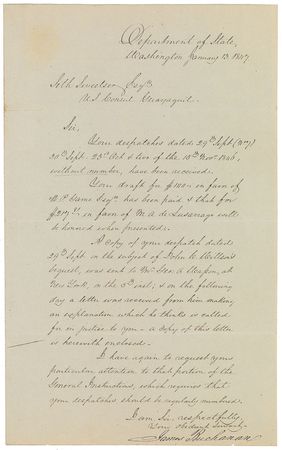 Department of State,
Washington January 13. 1847.
Seth Sweetser Esqr.
U.S. Consul Guayaquil.
Sir.
Your despatches dated 29th Sept.
30th Sept. 23d Oct. & two of the 10th Nov. 1846,
without number, have been received.
Your draft for in favor of
Esqr. has been paid & that for
in favor of M. A. de Luzarraga will
be honored when presented.
A copy of your despatch dated
29th Sept. on the subject of John
request, was sent to Mr. Geo. A. at
New York, on the 5th inst; & on the
following day a letter was received from him making
an explanation which he thinks is called
for in justice to you - a copy of this letter
is herewith enclosed.
I have again to request your
particular attention to that portion of the
General Instructions, which requires that
your despatches should be regularly numbered.
I am Sir, respectfully,
Your Obedient Servant,
James Buchanan